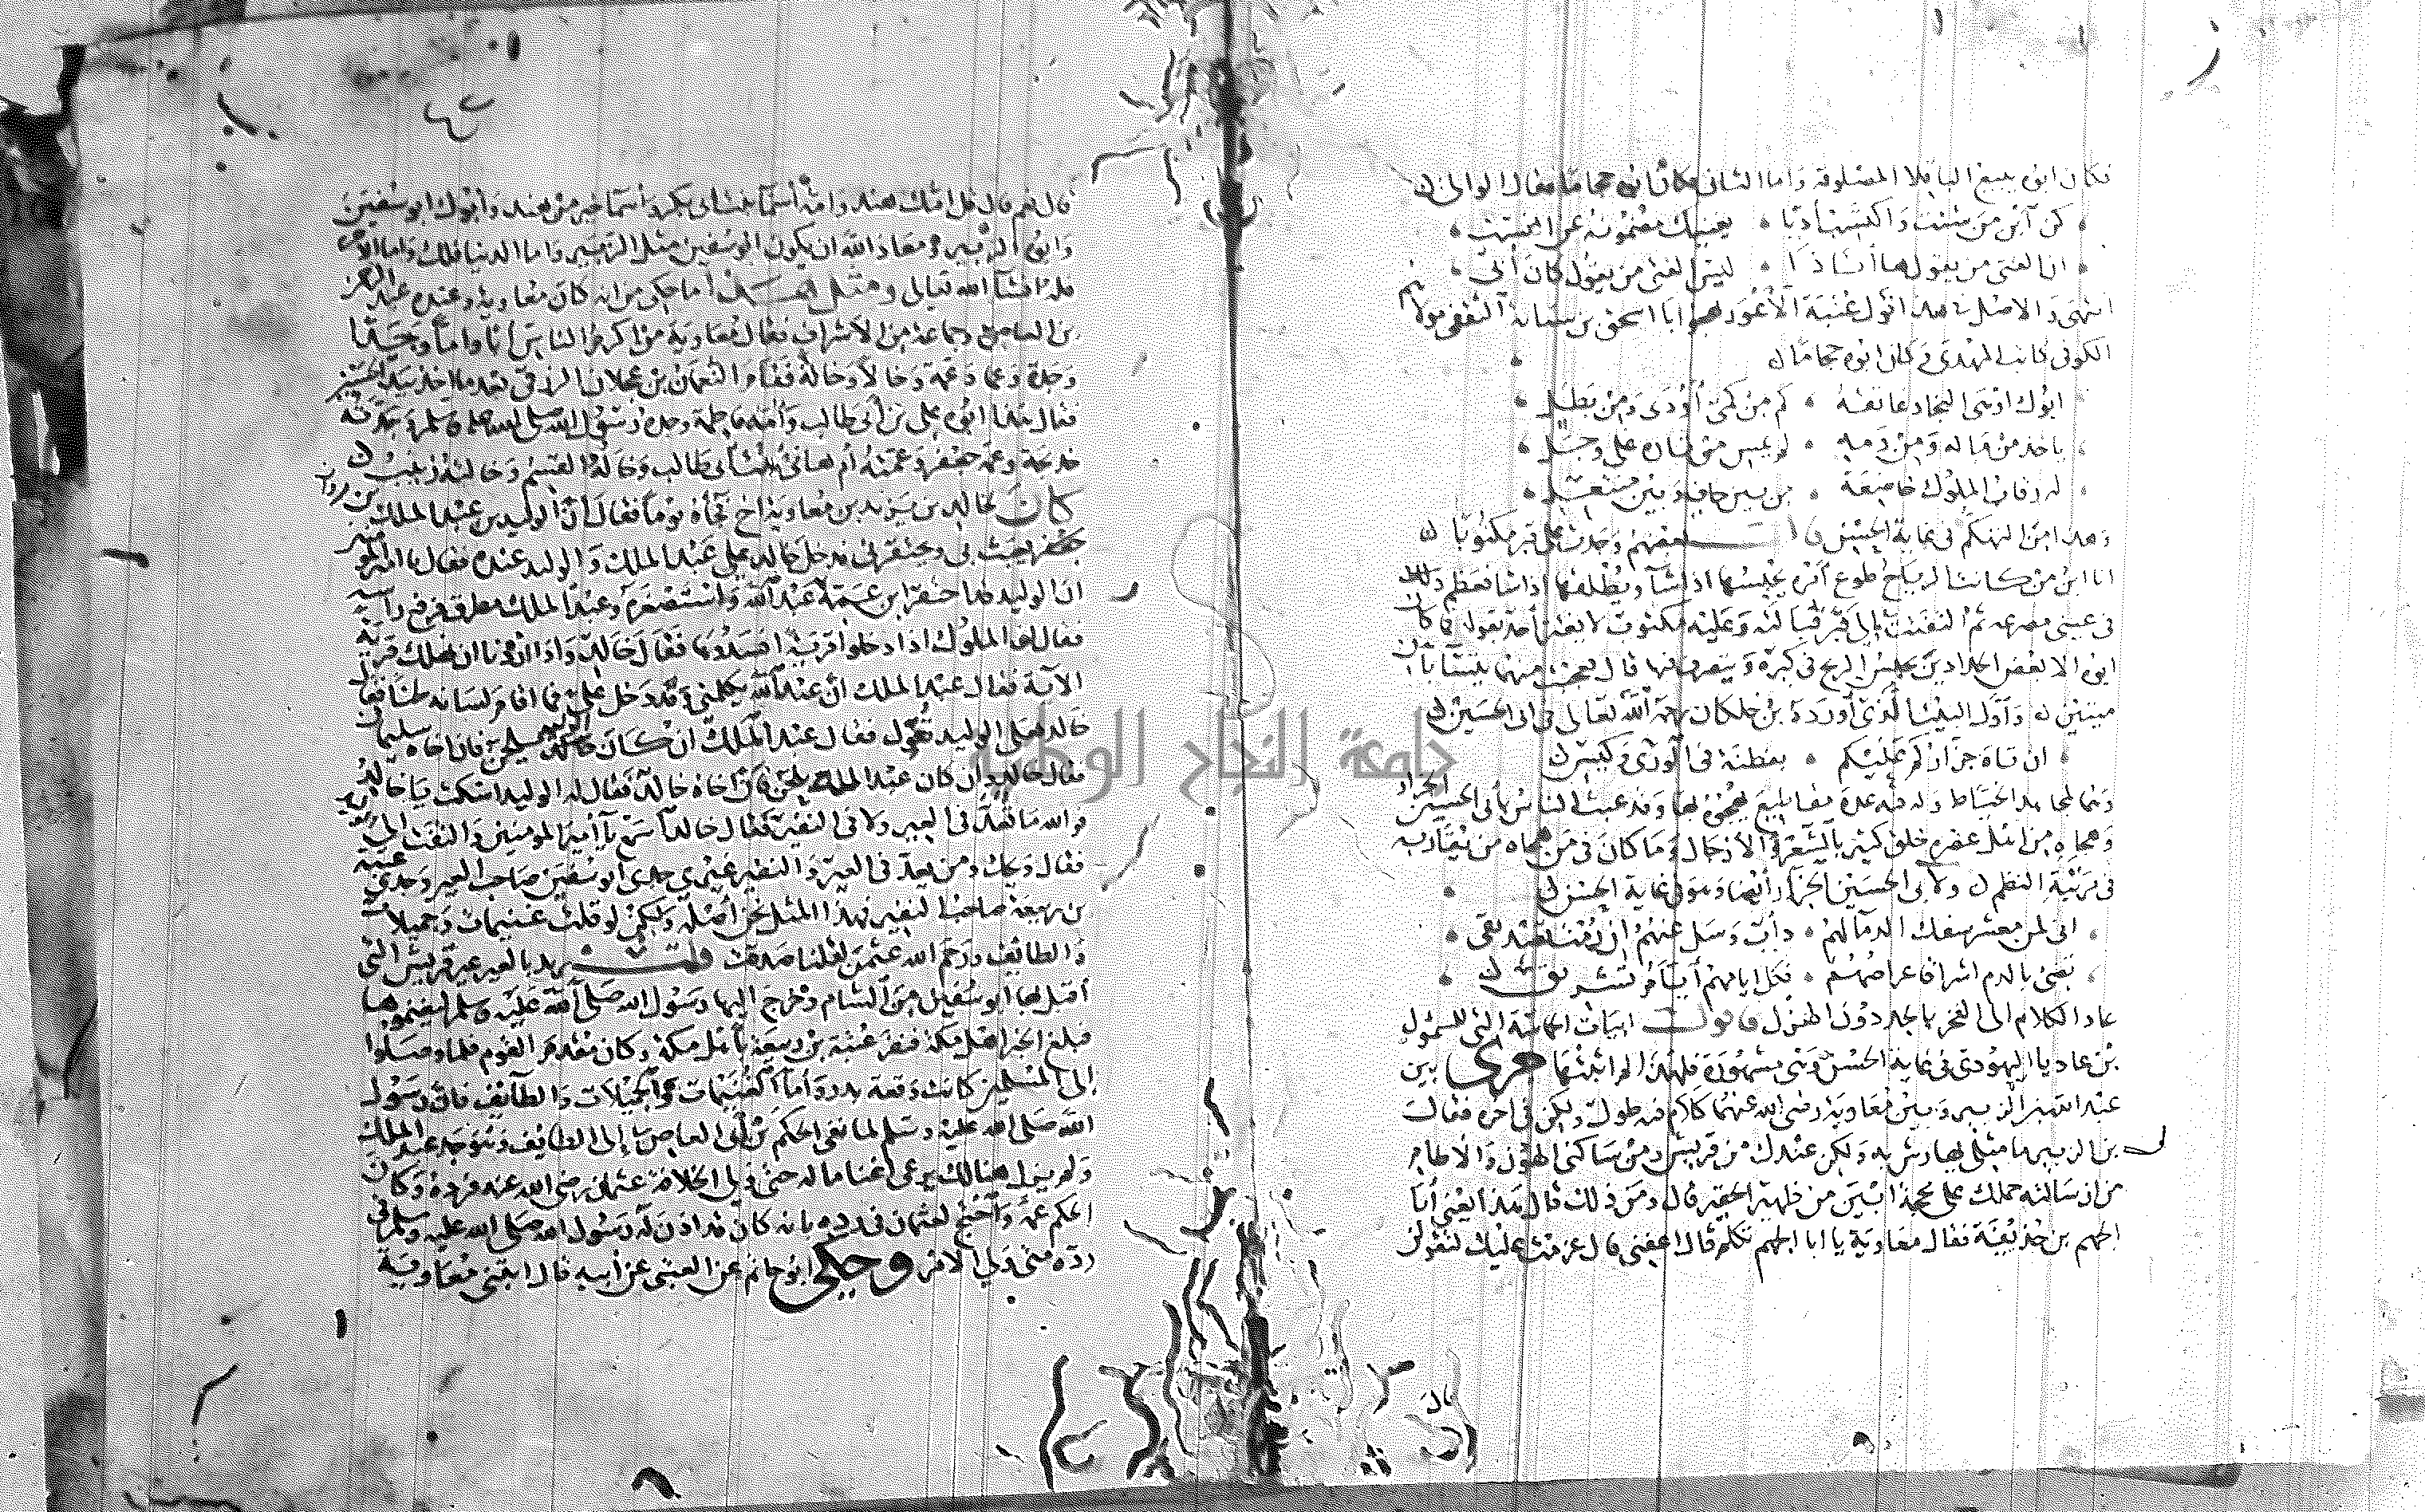 فكان ابوه يبيع الباقلا المصلوقة واما الثانى فكان ابوه حجاما فقال الوالى
كن ابن من شئت واكتسب ادبا يغنيك مضمونه عن النسب
ان الفتى من يقول ها أنا ذا ليس الفتى من يقول كان أبى
انتهى والاصل فى هذا قول عتبة الأعور يهجو ابا اسحق بن الثقفى مولاهم
الكوفى كاتب المهدى وكان ابوه حجاما
ابوك اوهى النجاد عاتقه كم من كمى أودى ومن بطل
ياخذ من ماله ومن دمه لم يمس من ثاره على وجل
له رقاب الملوك خاضعة من بين حاف وبين منتعل
وهذا من التهكم فى غاية الحسن بعضهم وجدت على قبر مكتوبا
انا ابن من كانت الرياح طوع أمره يحبسها اذا شا ويطلقها اذا شا فعظم ذلك
فى عينى مصرعه ثم التفت إلى قبر قبالته وعليه مكتوب لا يغتر أحد بقوله فما كان
ابوه الا بعض الحدادين يحبس الريح فى كيره ويتصرف فيها قال فعجبت منهما يتسابان
ميتين واول البيت الذى أورده بن خلكان رحمه الله تعالى فى ابى الحسين
ان تاه جزاركم عليكم بفطنة فى الورى وكيس
ومنها لمجاهد الخياط وله فيه عدة مقاطيع يهجوه بها وقد عبث الناس بأبى الحسين الجزار
وهجاه من اهل عصره خلق كثير بالشعر والأزجال وما كان فى من هجاه من يقاربه
فى مرتبة النظم ولأبى الحسين الجزار أيضا وهو فى غاية الحسن
انى لمن معشر سفك الدما لهم دأب وسل عنهم ان رمت تصديقى
تضئ بالدم اشراقا عراصهم فكل ايامهم أيام تشريق
عاد الكلام الى الفخر بالجد دون الهزل ابيات الحماسة التى للسموأل
بن عاديا اليهودى فى غاية الحسن وهى مشهورة فلهذا لم اثبتها جرى بين
عبد الله بن الزبير وبين معاوية رضى الله عنهما كلام فيه طول ولكن فى اخره فقال
بن الزبير ما مثلى يهارش به ولكن عندك من قريش ومن ساكنى الحجون والاطام
من ان سالته حملك على محجة ابين من ظهر الجفير قال ومن ذلك قال هذا يعنى أبا
الجهم بن حذيفة فقال معاوية يا ابا الجهم تكلم قال اعفنى قال عزمت عليك لتقولن
قال
قال نعم قال قل امك هند وامه أسما بنت ابى بكر وأسما خير من هند وأبوك ابو سفين
وابوه الزبير ومعاذ الله ان يكون ابو سفين مثل الزبير واما الدنيا فلك واما الاخرة
فله ان شا الله تعالى أما حكى من انه كان معاوية وعنده
بن العاص وجماعة من الأشراف فقال معاوية من اكرم الناس أبا واما وجدا
وجدة وعما وعمة وخالا وخالة فقام النعمان بن عجلان الزرقى بعد ما اخذ بيد الحسن
فقال هذا ابوه على بن أبى طالب وأمه فاطمة وجده رسول الله صلى الله عليه وسلم وجدته
خديجة وعمه جعفر وعمته أم هانئ بنت أبى طالب وخاله القسم وخالته زينب
كان لخالد بن يزيد بن معاوية اخ فجأه يوما فقال ان الوليد بن عبد الملك بن مروان
يعبث بى ويحتقرنى فدخل خالد على عبد الملك والوليد عنده فقال يا امير المومنين
ان الوليد قد احتقر ابن عمه عبد الله واستصغره وعبد الملك مطرق فرفع رأسه
فقال ان الملوك اذا دخلوا قرية افسدوها فقال خالد واذا اردنا ان نهلك قرية
الآية فقال عبد الملك أفى عبد الله تكلمنى وقد دخل على فما اقام لسانه لحنا فقال
خالد فعلى الوليد تعول فقال عبد الملك ان كان الوليد يلحن فان اخاه سليمان
فقال خالد وان كان عبد الله يلحن فان اخاه خالد فقال له الوليد اسكت يا خالد
فو الله ما تعد فى العير ولا فى النفير فقال خالد اسمع يا أمير المومنين والتفت الى الوليد
فقال ويحك ومن يعد فى العير والنفير غيرى جدى ابو سفين صاحب العير وجدى عتبة
بن ربيعة صاحب النفير فهذا المثل نحن أصله ولكن لو قلت غنيمات وجبيلات
والطائف ورحم الله عثمن لقلنا صدقت قلت يريد بالعير عير قريش التى
أقبل بها ابو سفين من الشام وخرج اليها رسول الله صلى الله عليه وسلم ليغنموها
فبلغ الخبر اهل مكة فنفر عتبة بن ربيعة بأهل مكة وكان مقدم القوم فلما وصلوا
إلى المسلمين كانت وقعة بدر وأما الغنيمات والجبيلات والطائف فان رسول
الله صلى الله عليه وسلم لما نفى الحكم بن أبى العاص إلى الطائف وهو جد عبد الملك
ولم يزل هنالك يرعى اغنما ماله حتى ولى الخلافة عثمان رضى الله عنه فرده وكان
الحكم عمه واحتج لعثمان فى رده بانه كان قد اذن له رسول الله صلى الله عليه وسلم فى
رده متى ولى الامر وحكى ابو حاتم عن العتبى عن أبيه قال ابتنى معاوية
جامعة النجاح الوطنية